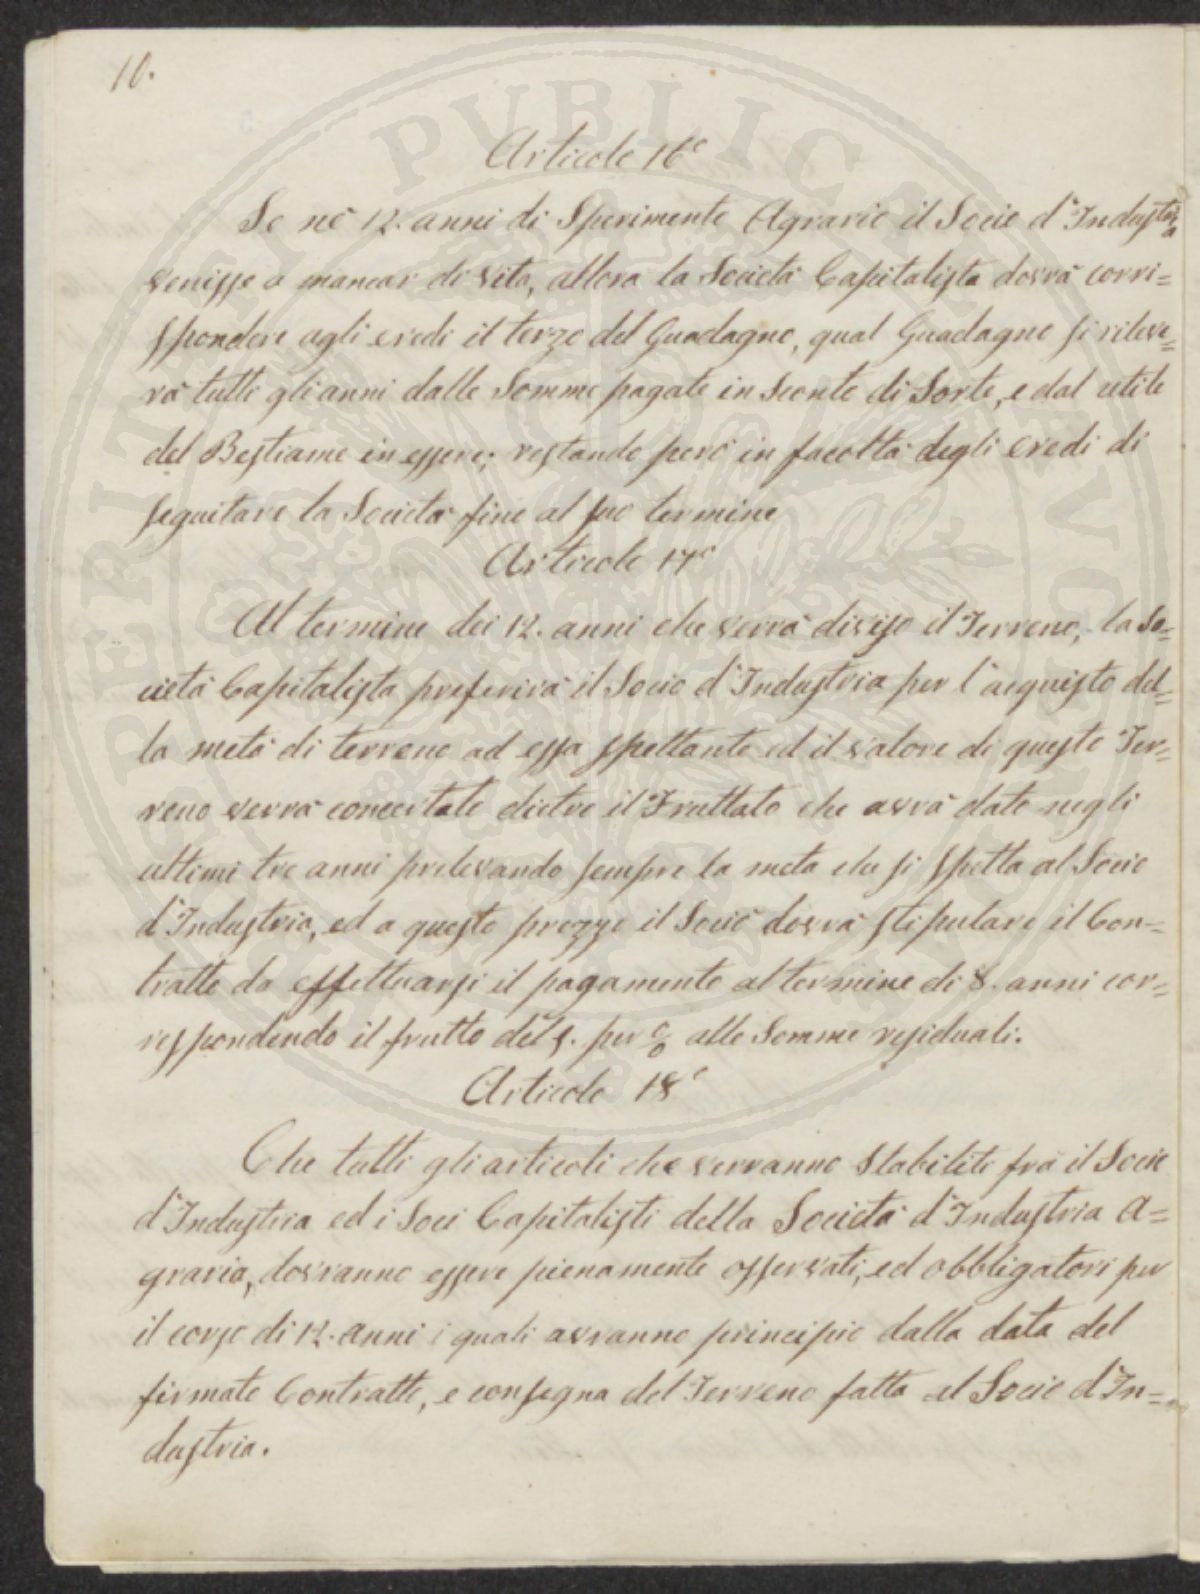 10.
Articolo 16°
Se nè 12. anni di Sperimento Agrario il Socio d'Industria
venisse a mancar di vita, allora la Società Capitalista dovrà corri=
spondere agli eredi il terzo del Guadagno, qual Guadagno si rileve=
rà tutti gli anni dalle Somme pagate in Sconto di Sorte, e dal utile
del Bestiame in essere; restando però in facoltà degli eredi di
seguitare la Società fino al suo termine
Articolo 17°
Al termine dei 12. anni che verrà diviso il Terreno, la So=
cietà Capitalista preferirà il Socio d'Industria per l'acquisto del=
la metà di terreno ad essa spettante ed il valore di questo Ter=
reno verrà concertato dietro il Fruttato che avrà dato negli
ultimi tre anni prelevando sempre la meta che si spetta al Socio
d'Industria, ed a questo prezzo il Socio dovrà stipulare il Con=
tratto da effettuarsi il pagamento al termine di 8. anni cor=
rispondendo il frutto del 5. per c/o alle Somme residuali.
Articolo 18°
Che tutti gli articoli che verranno Stabiliti frà il Socio
d'Industria ed i Soci Capitalisti della Società d'Industria A=
graria, dovranno essere pienamente osservati, ed obbligatori per
il corso di 12. anni i quali avranno principio dalla data del
firmato Contratto, e consegna del Terreno fatta al Socio d'In=
dustria.
PERITI PUBLICAE